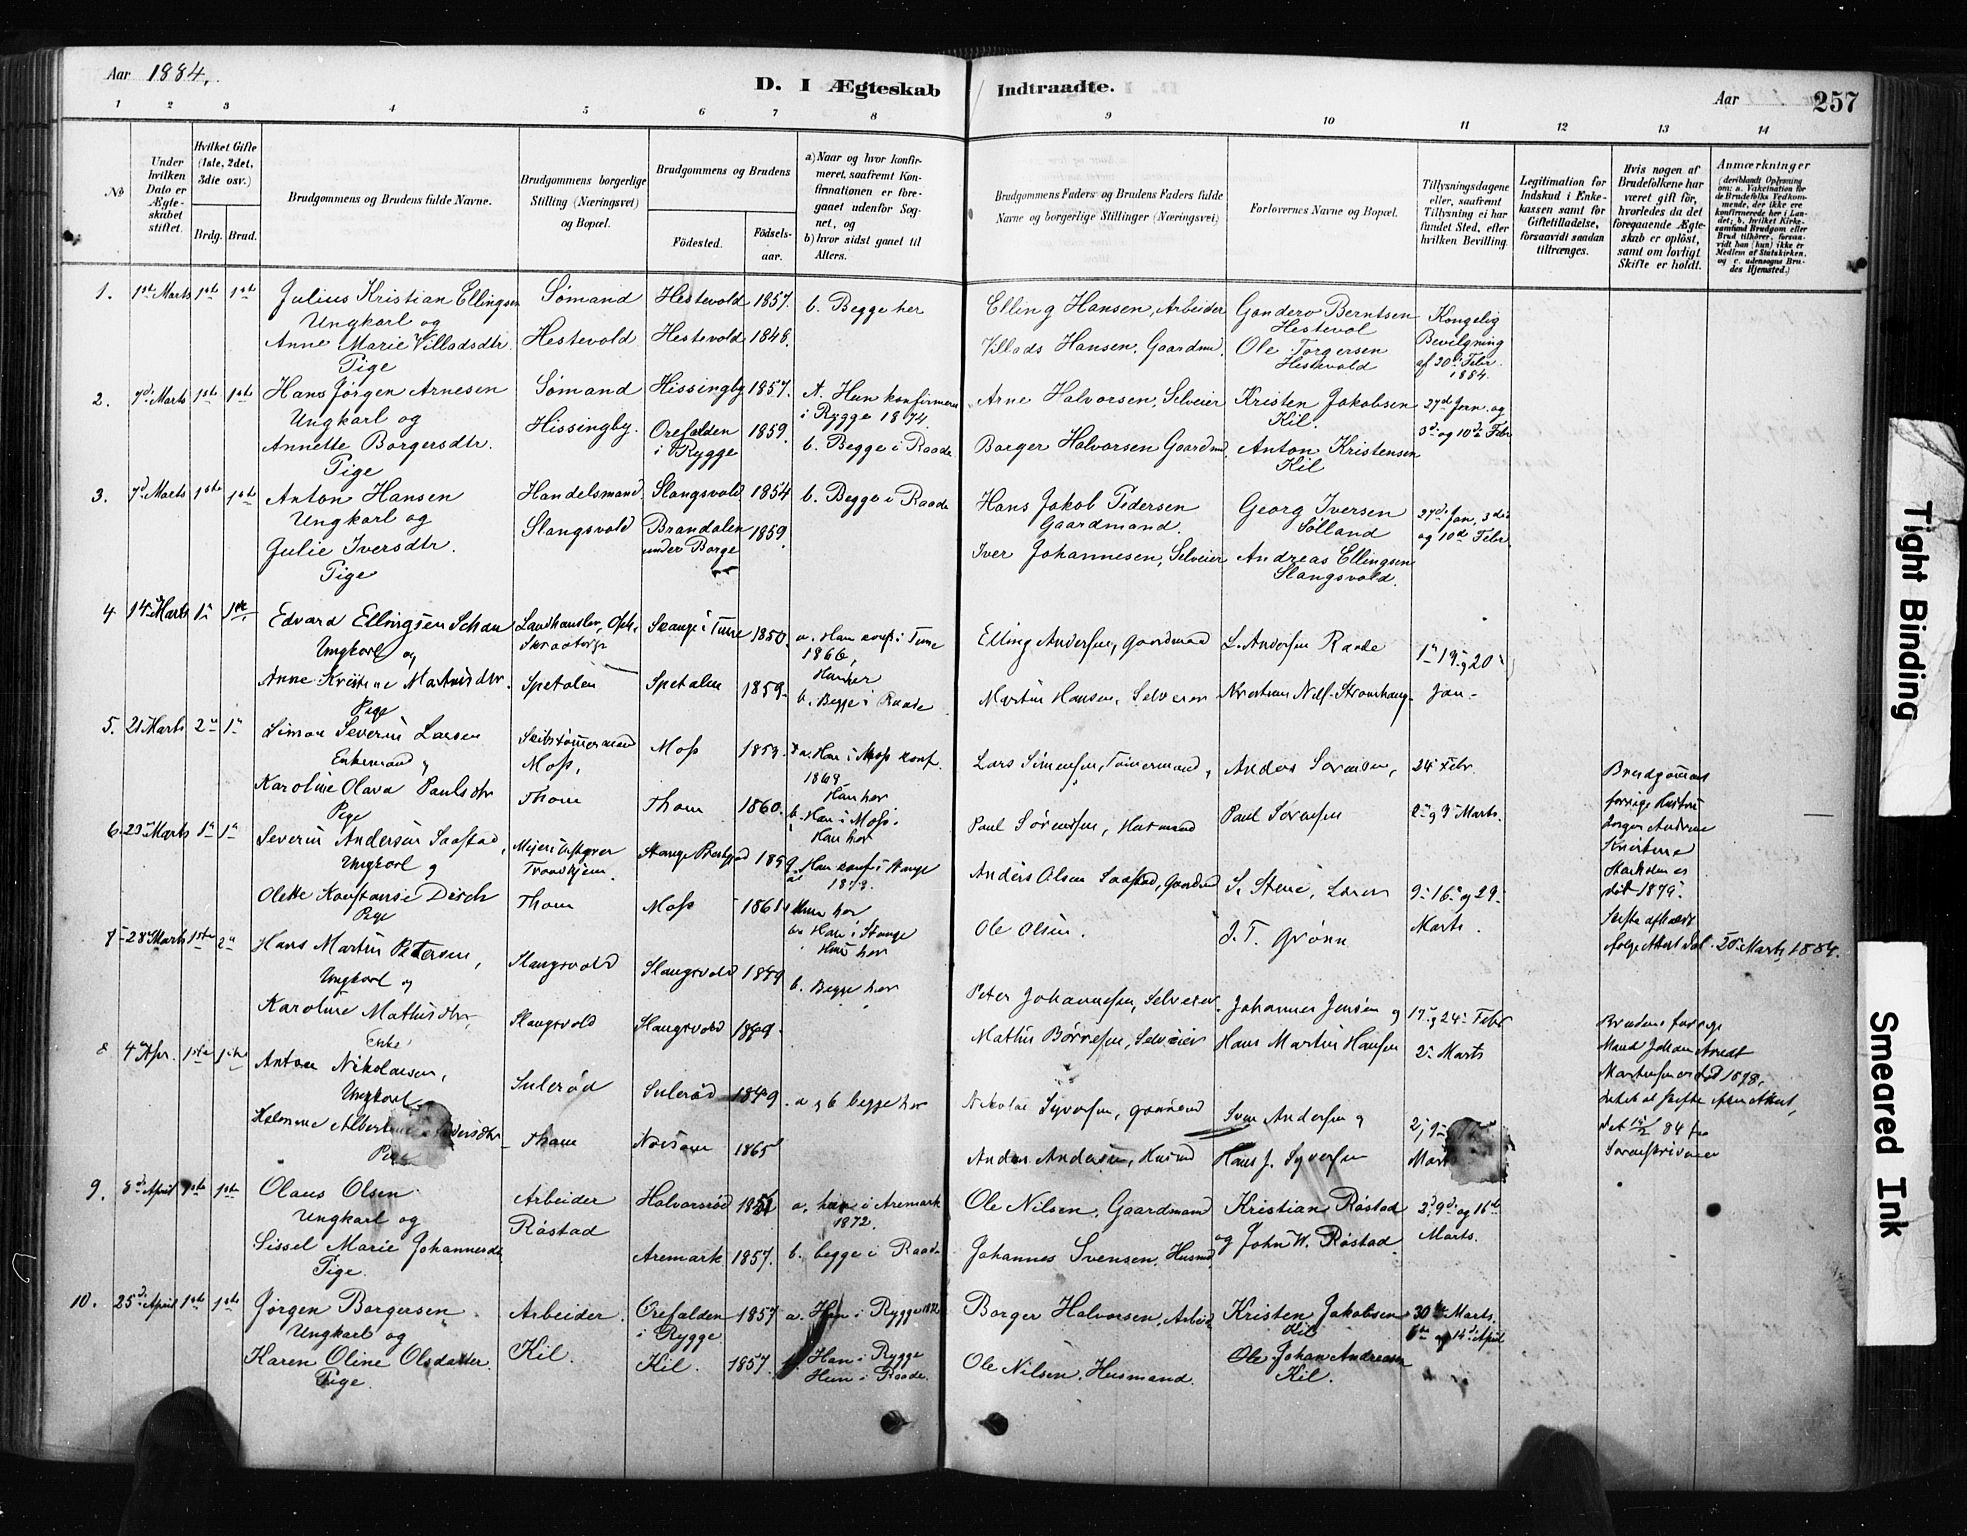 Aar 1884.
D. I Ægteskab Indtraadte.
Aar 257
1 2 3 4 5 6 7 8 9 10 11 12 13 14
No
Under hvilken Dato er Ægteskabet stiftet.
Hvilket Gifte (1ste, 2det, 3die osv.)
Brdg. Brud.
Brudgommens og Brudens fulde Navne.
Brudgommens borgerlige Stilling (Næringsvei) og Bopæl.
Brudgommens og Brudens
Födested. Födsels-aar.
a) Naar og hvor konfirmeret, saafremt Konfirmationen er foregaaet udenfor Sognet, og
b) hvor sidst gaaet til Alters.
Brudgommens Faders og Brudens Faders fulde Navne og borgerlige Stillinger (Næringsvei)
Forlovernes Navne og Bopæl.
Tillysningsdagene eller, saafremt Tillysning ei har fundet Sted, efter hvilken Bevilling.
Legitimation for Indskud i Enkekassen samt for Giftetilladelse, forsaavidt saadan tiltrænges.
Hvis nogen af Brudefolkene har været gift før, hvorledes da det foregaaende Ægteskab er opløst, samt om lovligt Skifte er holdt.
Anmærkninger
(deriblandt Oplysning om: a. Vakcination for de Brudefolks Vedkommende, der ikke ere konfirmerede her i Landet; b. hvilket Kirkesamfund Brudgom eller Brud tilhører, forsaavidt han (hun) ikke er Medlem af Statskirken, og c. udensogns Brudes Hjemsted.)
1. 1ste Marts 1ste 1ste Julius Kristian Ellingsen Sømand Hestevold 1857. b. Begge her Elling Hansen, Arbeider Gundero Berntsen Kongelig
Ungkarl og Hestevol Bevilgning
Anne Marie Villadsdtr. Hestevold Hestevold 1848. Villads Hansen, Gaardmd. Ole Torgersen af 20d Febr.
Pige Hestevold 1884.
2. 7d Marts 1ste 1ste Hans Jørgen Arnesen Sømand Hissingby 1857. A. Hun konfirmeret Arne Halvorsen, Selveier Kristen Jakobsen 27d Jan. og
Ungkarl og i Rygge 1874. Kil. 3d og 10de Febr
Annette Borgersdtr. Hissingby. Orefalden 1859. b. Begge i Raade Borger Halvorsen Gaardmd. Anton Kristensen
Pige i Rygge Kil
3. 7d Marts 1ste 1ste Anton Hansen Handelsmand Slangsvold 1854 b. Begge i Raade Hans Jakob Pedersen Georg Iversen 27d Jan, 3die
Ungkarl og Gaardmand. Solland og 10de Febr.
Julie Iversdtr. Slangsvold Brandalen 1859. Iver Johannesen, Selveier Andreas Ellingsen
Pige under Borge Slangsvold.
4 14 Marts 1 1ste Edvard Ellingsen Schau Skange i Tune 1850. a. Han konf. i Tune Elling Andersen, Gaardmand L. Andersen Raade 1 13 g 20
Ungkarl og 1866,
Anne Kristine Martinsdtr. Spetalen Spetalen 1859. Hun her Martin Hansen, Selveier Jan
Pige b. Begge i Raade
5. 21 Marts 2 1 Simon Severin Larsen Skibstømmermand Moss 1853. a. Han i Moss konf. Lars Simensen, Tømmermand, Anders Sørensen, 24 Febr. Brudgommens
Enkemand og Moss, 1869 forrige Hustru
Karoline Olava Paulsdtr Thom Thom 1860. Hun her Paul Sørensen, Husmand Paul Sørensen 2 g 9 Marts.
Pige b. Han i Moss. Hun her
6. 29 Marts 1 1 Severin Andersen Saastad, Stange Prestegjd 185 a. Han konf. i Stange Anders Olsen Saastad, Gaardmd S. Stene, 9 16 og 23
Ungkarl og Marts. død 1879.
Olette Konstanse Disch Thom Moss 1861 Hun her Ole Olsen. J. T. Grønn
Pige b. Han i Stange Hun her
7 28 Marts 1ste 2 Hans Martin Petersen, Slangsvold Slangsvold 1849 b. Begge her Peter Johannesen, Selveier Johannes Jensen og 17 g 24 Febr 20 Marts 1884.
Ungkarl og
Karoline Mathisdtr, Slangsvold Slangsvold 1849. Mathis Børresen, Selveier Hans Martin Hansen 2 Marts Brudens forrige
Enke Mand Johan Arndt
8 4 Apr. 1ste 1ste Anton Nikolaisen, Sulerød Sulerød 1849 a g b begge her Nikolai Syversen, Svend Andersen g 2, 9 Martinsen død 1878,
Ungkarl
Helmine Albertine Andersdtr Thom 1865 Anders Andersen, Husmd Hans J. Syversen Marts
Pige
9. 8d April 1ste 1ste Olaus Olsen Arbeider Halvorsrød 185 a. han i Aremark Ole Nilsen, Gaardmand Kristian Røstad 2d 9d og 16de
Ungkarl og Røstad 1872. og John W. Røstad. Marts.
Sissel Marie Johannesdtr. Aremark 1857. b. begge i Raade Johannes Svensen, Husmd
Pige.
10. 25d April 1ste 1ste Jørgen Borgersen Arbeider. Orefalden 1857 a. Han i Rygge 1872 Borger Halvorsen, Arbeid. Kristen Jakobsen 30te Marts.
Ungkarl og i Rygge Kil 6te og 14d April
Karen Oline Olsdatter. Kil. Kil. 1857. b. Han i Rygge Ole Nilsen, Husmand. Ole Johan Andreasen
Pige. Hun i Raade. Kil.
Tight Binding
Smeared Ink